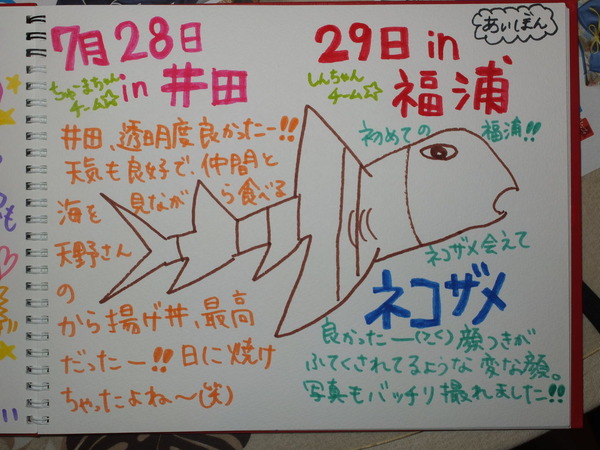 あいぽん
7月28日
ちゃまちゃん
チーム☆
in 井田
井田、透明度良かったー!!
天気も良好で、仲間と
海を見ながら食べる
天野さん
の
から揚げ丼、最高
だったー!!日に焼け
ちゃったよね〜(笑)
29日 in
しんちゃん
チーム☆
福浦
初めての福浦!!
ネコザメ会えて
ネコザメ
良かったー(^^)顔つきが
ふてくされてるような変な顔。
写真もバッチリ撮れました!!